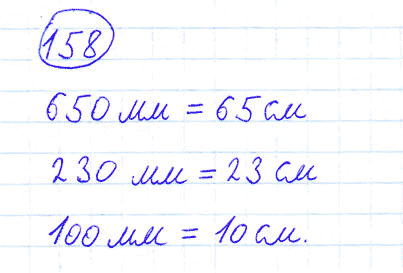 158
650 мм = 65 см
230 мм = 23 см
100 мм = 10 см.